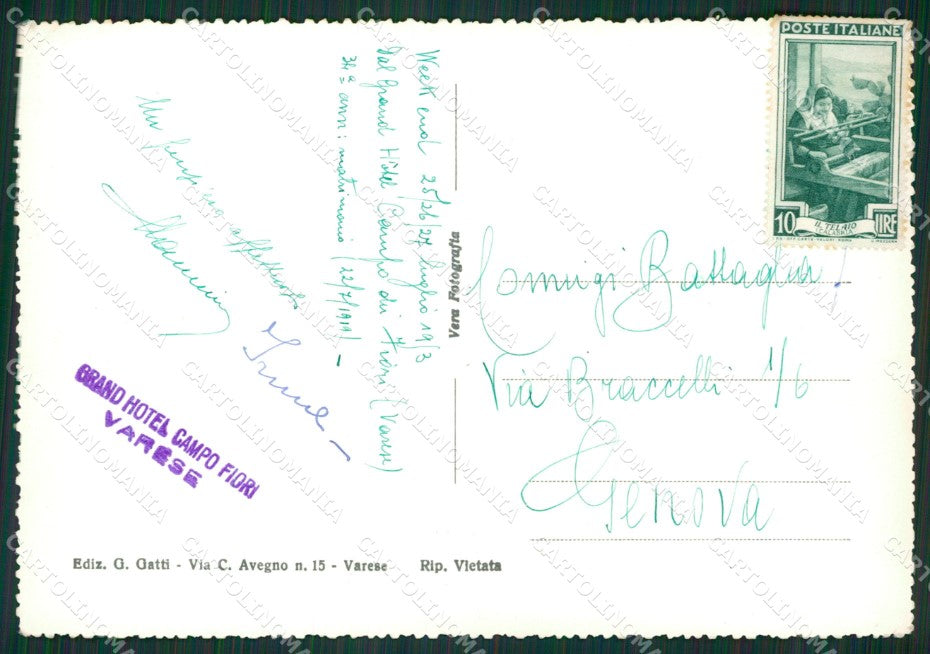 Week end 25/26/27 luglio 19/3
Dal Grand Hôtel Campo dei Fiori (Varese)
34ª = anni: matrimonio (12/7/1919) -
Un pensiero affettuoso
Irene -
GRAND HOTEL CAMPO FIORI
VARESE
Ediz. G. Gatti - Via C. Avegno n. 15 - Varese Rip. Vietata
Vera Fotografia
POSTE ITALIANE
10 LIRE
IL TELAIO
Battaglia
Via Braccelli 1/6
Genova
CARTOLINOMANIA